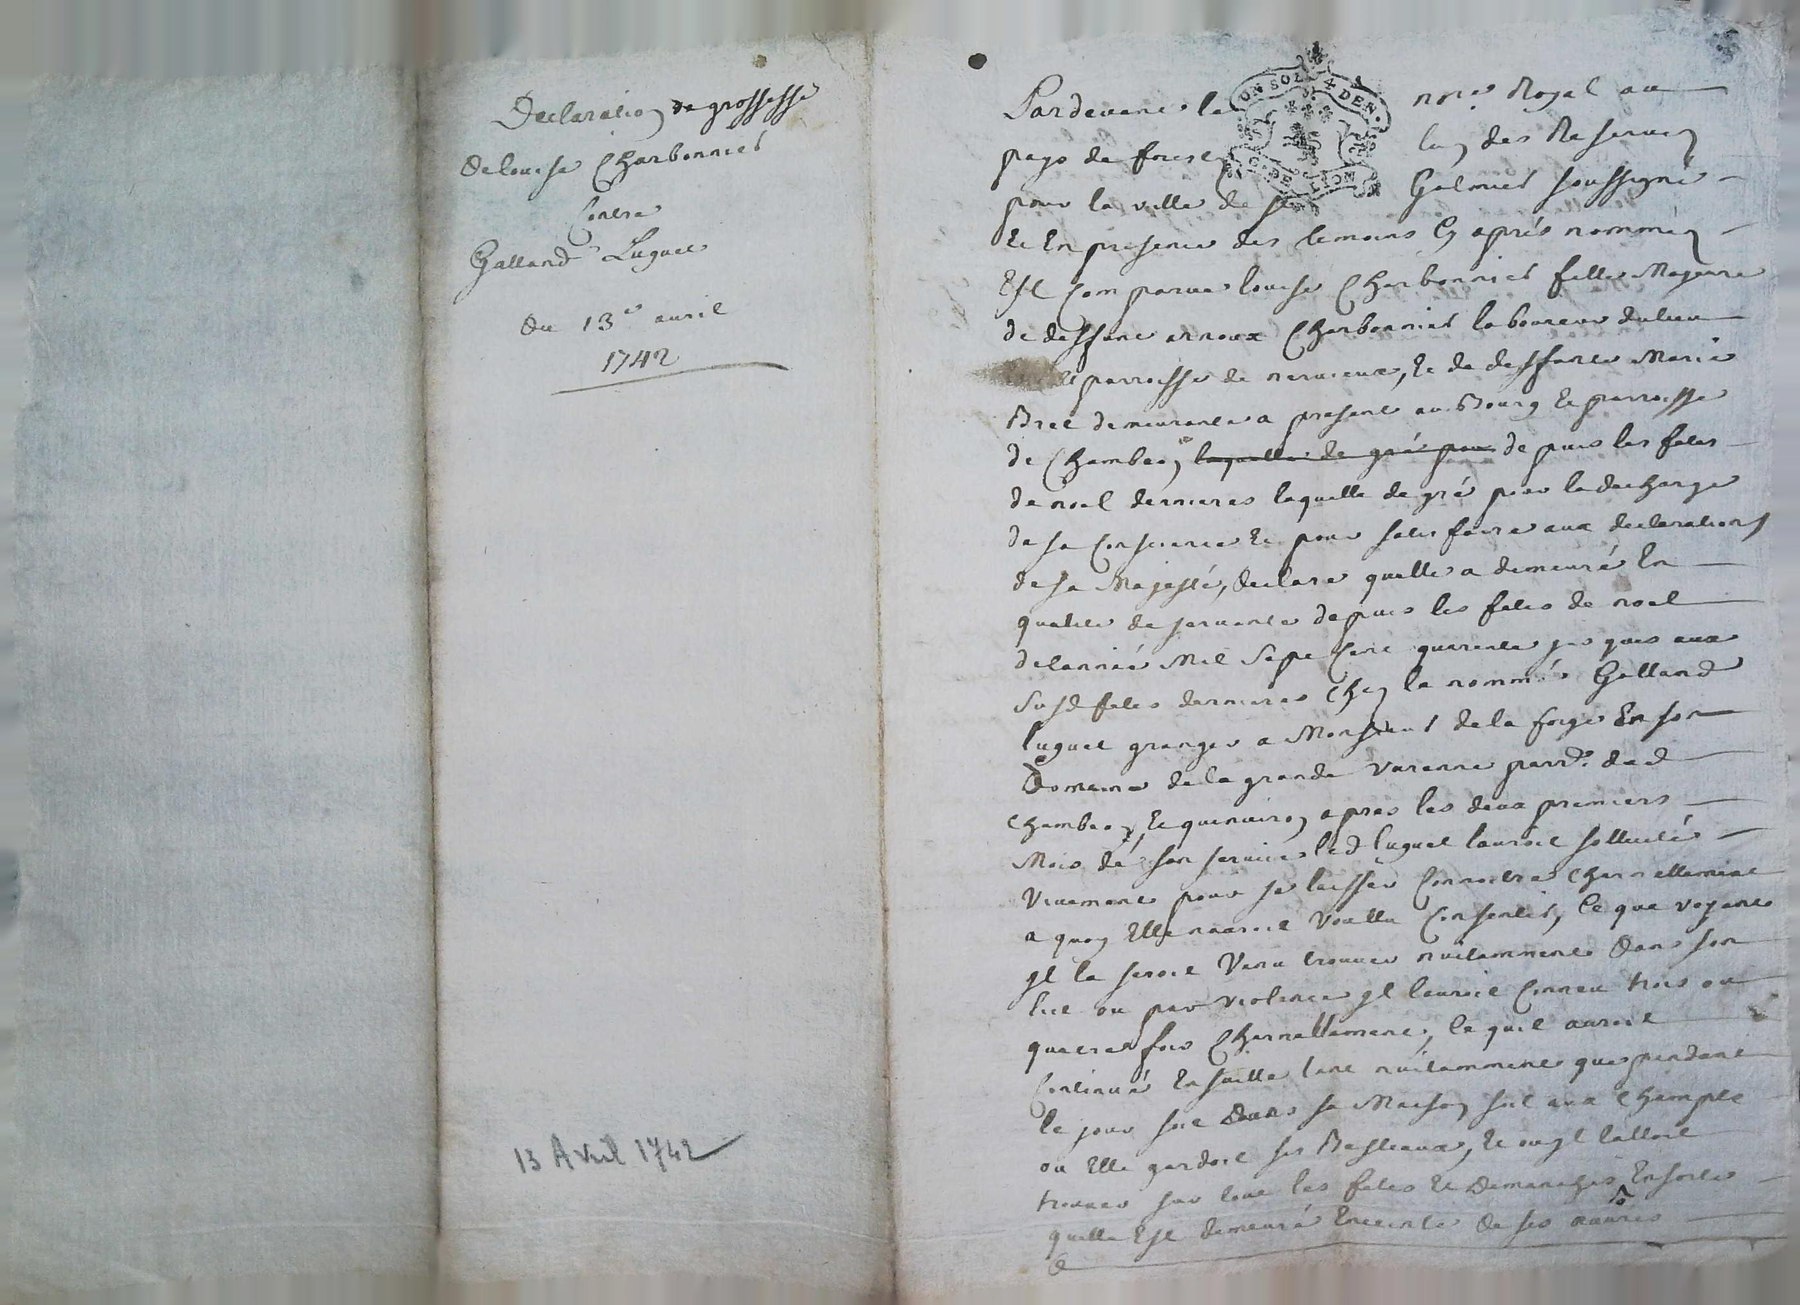 Declaration de grossesse
de louise Charbonnier
Contre
Galland Luguet
Du 13e avril
1742
13 Avril 1742
UN SOL 4 DEN.
G. DE LION
Pardevant le nore. Royal au
pays de forest des Reservez
pour la ville de st Galmier soussigné
Et En presence des temoins Cy aprés nommez
Est Comparue louise Charbonnier fille Majeure
de deffunt arnoux Charbonnier laboureur du lieu
et parroisse de nervieux, Et de deffunte Marie
Bret demeurante a present au Bourg Et parroisse
de Chambeon laquelle de gré pour depuis les fetes
de noel dernieres laquelle de gré pour la decharge
de sa Conscience Et pour satisfaire aux declarations
de sa Majesté, declare quelle a demeuré En
qualité de servante depuis les fetes de noel
de lannéé Mil Sept Cent quarente jusques aux
susd fetes dernieres Chez le nommé Galland
luguet granger a Monsieur de la forge En son
Domaine de la grande Varenne parrse. dud
Chambeon, Et quenviron apres les deux premiers
Mois de son service led luguet lauroit sollicité
Vivement pour se laisser Connoitre Charnellement
a quoy Elle nauroit Voullu Consentir, Ce que voyant
jl la seroit Venu trouver nuitamment Dans son
lict ou par violence jl lauroit Conneu trois ou
quatre fois Charnellement, Ce quil auroit
Continué Ensuitte tant nuitamment que pendant
le jour soit Dans sa Maison soit aux Champts
ou Elle gardoit ses Bestiaux, Et ou jl lalloit
trouver sur tout les fetes Et Dimanches Ensorte
quelle Est demeuré Enceinte de ses œuvres